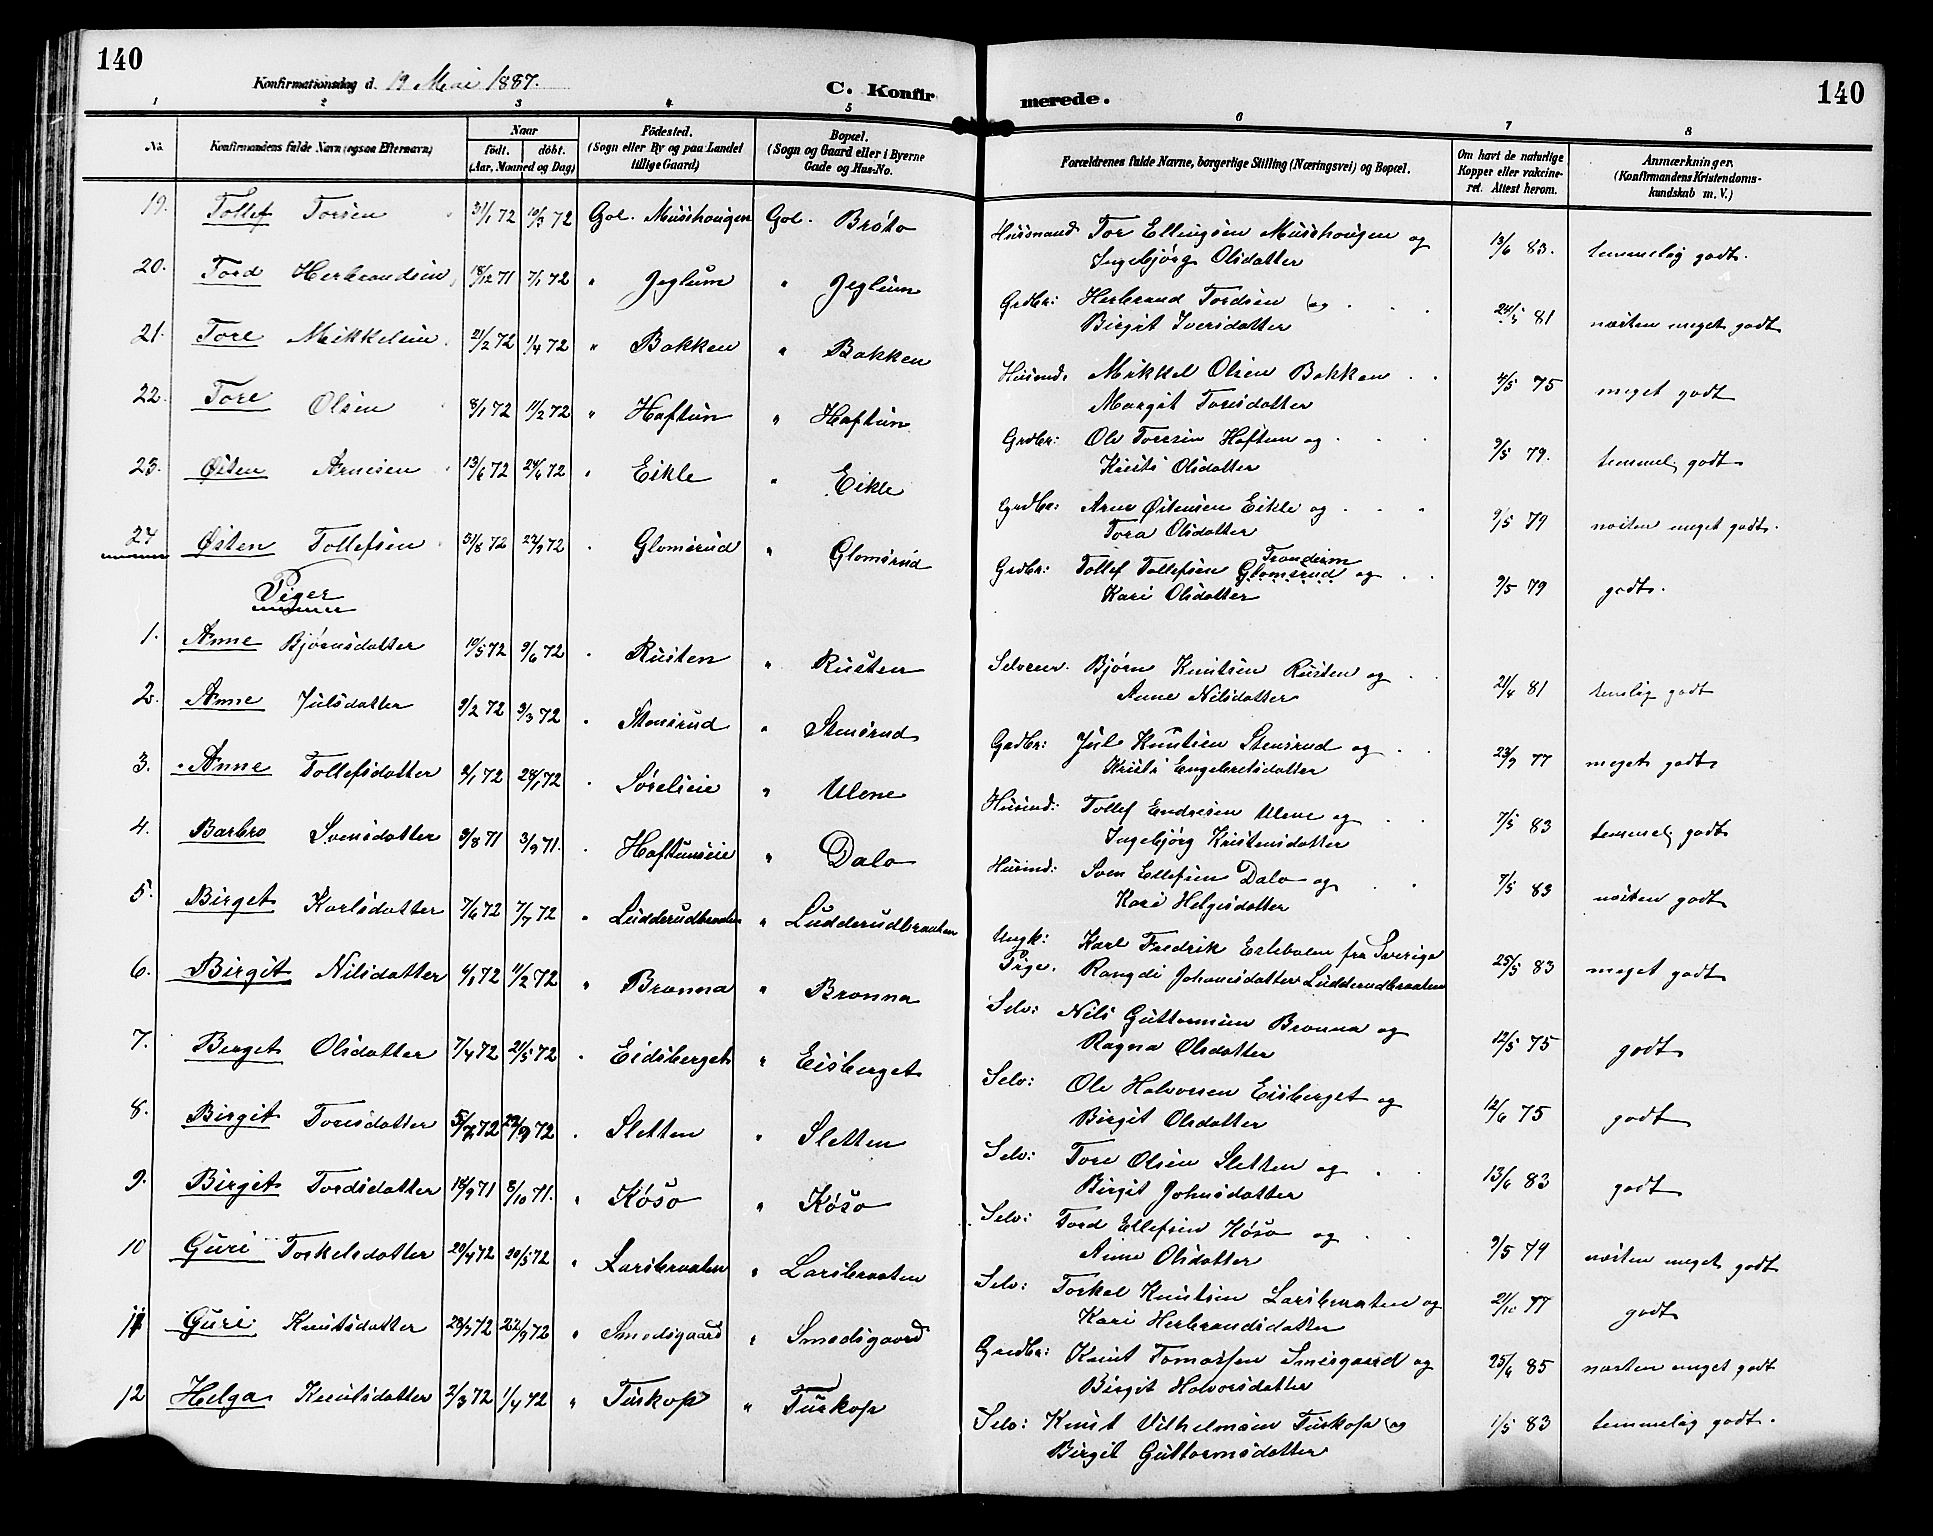 140
Konfirmationsdag d. 19 Mai 1887.
C. Konfir
merede.
140
1 2 3 4 5 6 7 8
No. Konfirmandens fulde Navn (ogsaa Efternavn) Naar født. døbt. (Aar, Maaned og Dag) Födested. (Sogn eller By og paa Landet tillige Gaard) Bopæl. (Sogn og Gaard eller i Byerne Gade og Hus-No. Forældrenes fulde Navne, borgerlige Stilling (Næringsvei) og Bopæl. Om havt de naturlige Kopper eller vakcineret. Attest herom. Anmærkninger. (Konfirmandens Kristendomskundskab m. V.)
19. Tollef Torsen 31/1 72 10/3 72 Gol. Musshougen Gol. Brøto Husmand Tor Ellingsen Musshougen og
Ingebjørg Olsdatter 13/6 83. temmelig godt.
20. Tord Herbrandsen 18/12 71 7/1 72 " Jeglum " Jeglum Grdbr: Herbrand Tordsen og
Birgit Iversdatter 24/5 81 næsten meget godt
21. Tore Mikkelsen 21/2 72 1/4 72 " Bakken " Bakken Husmd. Mikkel Olsen Bakken
Margit Toresdatter 4/5 75 meget godt
22. Tore Olsen 8/1 72 11/2 72 " Haftun " Haftun Grdbr: Ole Toresen Haftun og
Kristi Olsdatter 9/5 79. temmel. godt
23. Østen Arnesen 13/6 72 24/6 72 " Eikle " Eikle Grdbr: Arne Østensen Eikle og
Tora Olsdatter 9/5 79 næsten meget godt.
24 Østen Tollefsen 31/8 72 22/9 72 " Glomsrud " Glomsrud Grdbr: Tollef Tollefsen Glomsrud og
Kari Olsdatter 9/5 79 godt.
Piger
1. Anne Bjørnsdatter 10/5 72 9/6 72 " Rusten " Rusten Selveier. Bjørn Knutsen Rusten og
Anne Nilsdatter 21/4 81 temlig godt
2. Anne Julsdatter 9/2 72 3/3 72 " Stensrud " Stensrud Gadbr: Jul Knutsen Stensrud og
Kristi Engebretsdatter 23/9 77 meget godt
3. Anne Tollefsdatter 2/1 72 28/1 72 " Sørelieie " Ulene Husmd: Tollef Endresen Ulene og
Ingebjørg Kristensdatter 7/5 83 temmel. godt
4. Barbro Svensdatter 3/8 71 3/9 71. " Haftunseie " Dalo Husmd: Sven Ellefsen Dalo og
Kari Helgesdatter 7/5 83 næsten godt
5. Birget Karlsdatter 7/6 72 7/7 72 " Ludderudbraaten " Ludderudbraaten Ungk: Karl Fredrik Erlebolen fra Sverige
Pige. Rangdi Johannesdatter Ludderudbraaten 25/5 83 meget godt
6. Birgit Nilsdatter 4/1 72 11/2 72 " Bronna " Bronna Selv: Nils Guttormsen Bronna og
Ragna Olsdatter 12/5 75 godt
7. Berget Olsdatter 7/4 72 21/5 72 " Eidsberget " Eisberget Selv: Ole Halvorsen Eisberget og
Birgit Olsdatter 12/6 75 godt
8. Birgit Toresdatter 5/7 72 22/9 72 " Sletten " Sletten Selv: Tore Olsen Sletten og
Birgit Johnsdatter 13/6 83 godt
9. Birgit Tordsdatter 18/9 71 8/10 71. " Køso " Køso Selv: Tord Ellefsen Køso og
Anne Olsdatter 9/5 79 næsten meget godt
10 Guri Torkelsdatter 20/4 72 20/5 72 " Larsbraaten " Larsbraaten Selv: Torkel Knutsen Larsbraaten og
Kari Herbrandsdatter 21/10 77 godt
11 Guri Knutsdatter 28/7 72 22/9 72 " Smedsgaard " Smedsgaard Grdbr: Knut Tomassen Smisgaard og
Birgit Halvorsdatter 25/6 85 næsten meget godt
12 Helga Knutsdatter 2/3 72 1/4 72 " Tuskop " Tuskop Selv: Knut Vilhelmsen Tuskop og
Birgit Guttormsdatter 1/5 83 temmelig godt.